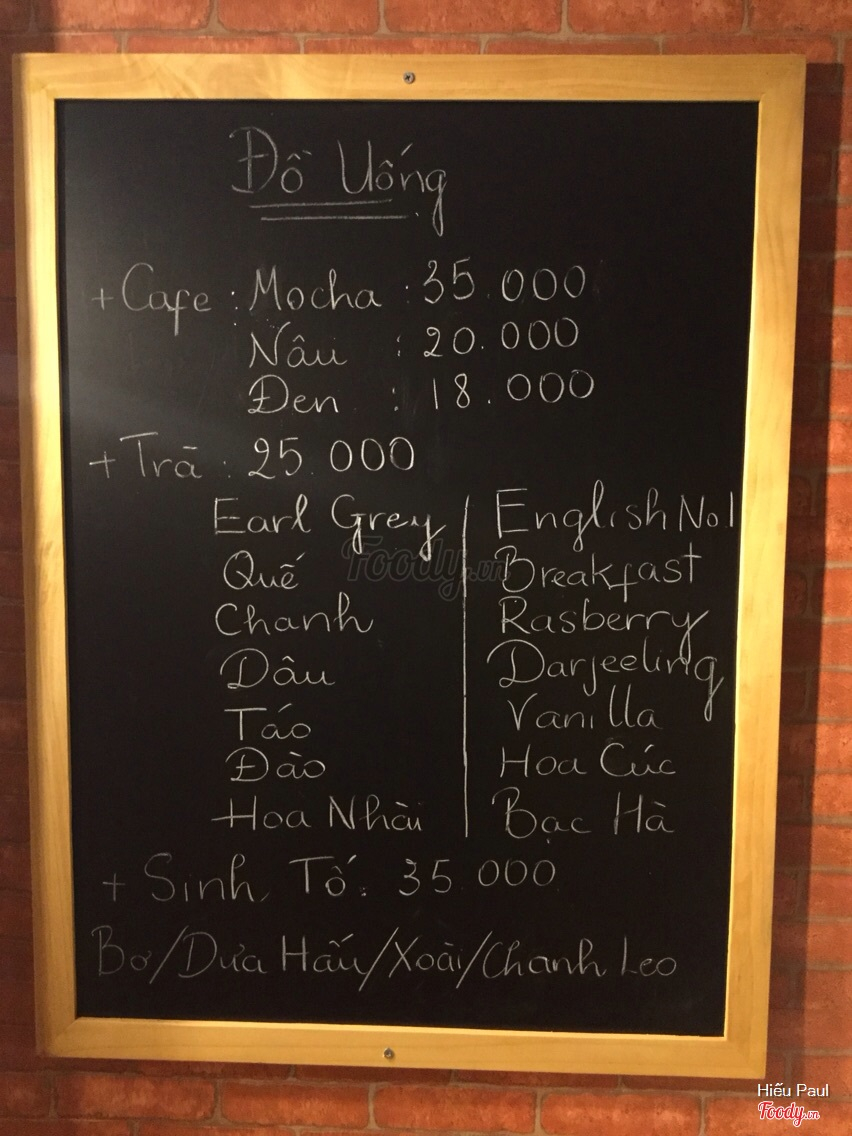 Đồ Uống
+ Cafe : Mocha : 35.000
Nâu : 20.000
Đen : 18.000
+ Trà : 25.000
Earl Grey | English No.1
Quế | Breakfast
Chanh | Rasberry
Dâu | Darjeeling
Táo | Vanilla
Đào | Hoa Cúc
Hoa Nhài | Bạc Hà
+ Sinh Tố : 35.000
Bơ/Dưa Hấu/Xoài/Chanh Leo
Foody.vn
Hiếu Paul
Foody.vn